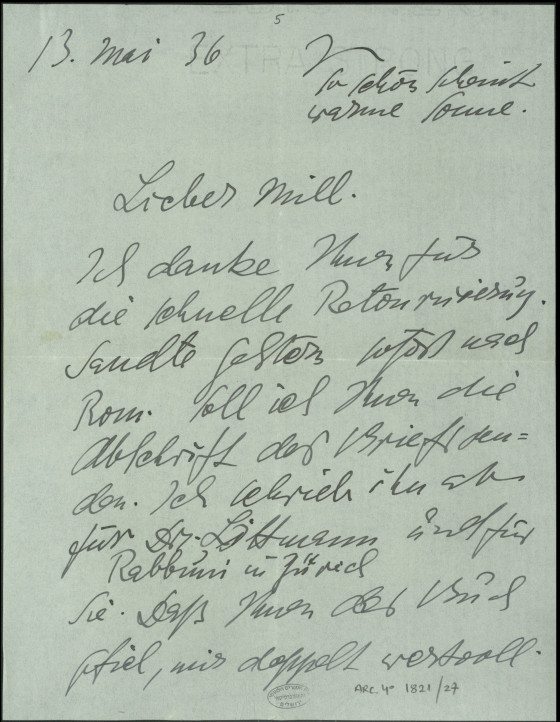 5
13. Mai 36
So schön scheint
warme Sonne.
Lieber Mill.
Ich danke Ihnen für
die schnelle Retournierung.
Sandte gestern sofort nach
Rom. Soll ich Ihnen die
Abschrift des Briefs sen=
den. Ich schrieb ihn ab
für Dr. Littmann und für
Rabbiner in Zürich
Sie. Daß Ihnen das Buch
gfiel, mir doppelt wertvoll.
ARC. 4° 1821/27